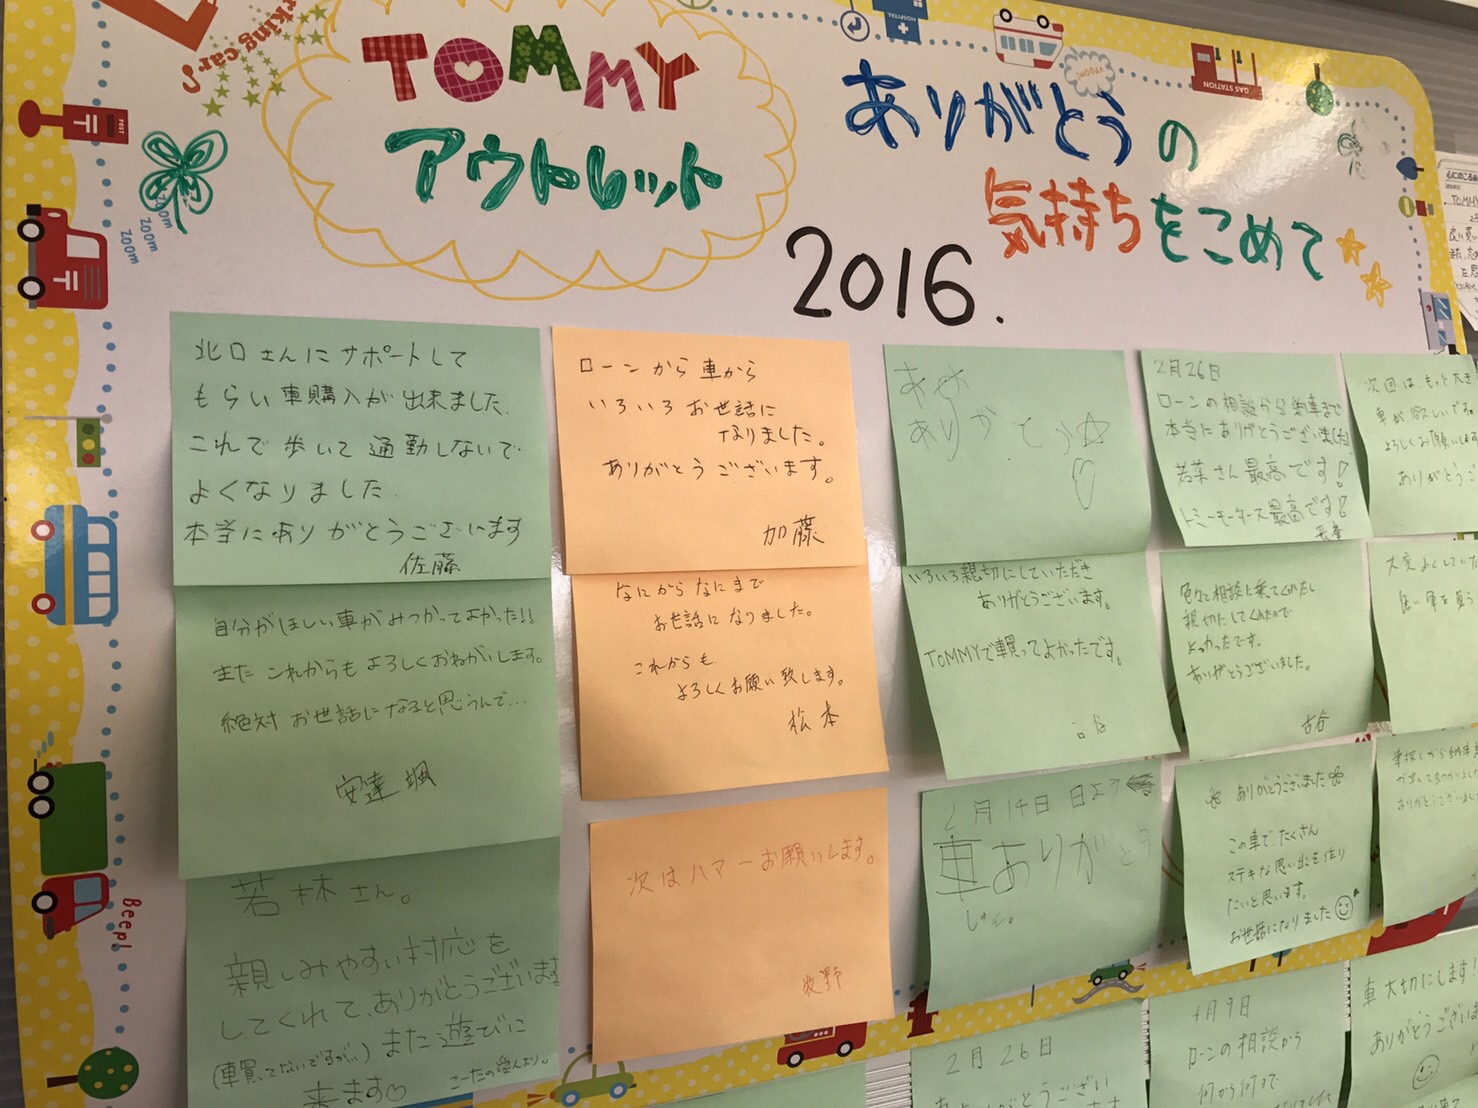 TOMMY
アウトレット
ありがとうの
気持ちをこめて
2016.
parking car?
POST
zoom
zoom
zoom
HOSPITAL
vroom!
GAS STATION
Beep!
北口さんにサポートして
もらい車購入が出来ました.
これで歩いて通勤しないで
よくなりました.
本当にありがとうございます
佐藤
自分がほしい車がみつかってよかった!!
またこれからもよろしくおねがいします。
絶対お世話になると思うんで…
安達 颯
若林さん。
親しみやすい対応を
してくれて、ありがとうございます
(車買ってないですが…)また遊びに
来ます♡
ローンから車から
いろいろお世話に
なりました。
ありがとうございます。
加藤
なにからなにまで
お世話になりました。
これからも
よろしくお願い致します。
松本
次はハマーお願いします。
牧野
ありがとう☆
♡
いろいろ親切にしていただき
ありがとうございます。
TOMMYで車買ってよかったです。
2月14日 日よう
車ありがとう
2月26日
ありがとうござい
2月26日
ローンの相談から納車まで
本当にありがとうございました
若菜さん最高です!
トミーモータース最高です!
色々と相談に乗ってくれたし
親切にしてくれたので
よかったです。
ありがとうございました。
古谷
ありがとうございました
この車で、たくさん
ステキな思い出を作り
たいと思います。
お世話になりました
4月9日
ローンの相談から
何から何まで
次回はもっと大き
車が欲しいです
よろしくお願いします
ありがとうご
大変よくしていた
良い車を買う
車探しから納車ま
ありがとうございました
車大切にします!
ありがとうございま
心にのこる
TOMMY